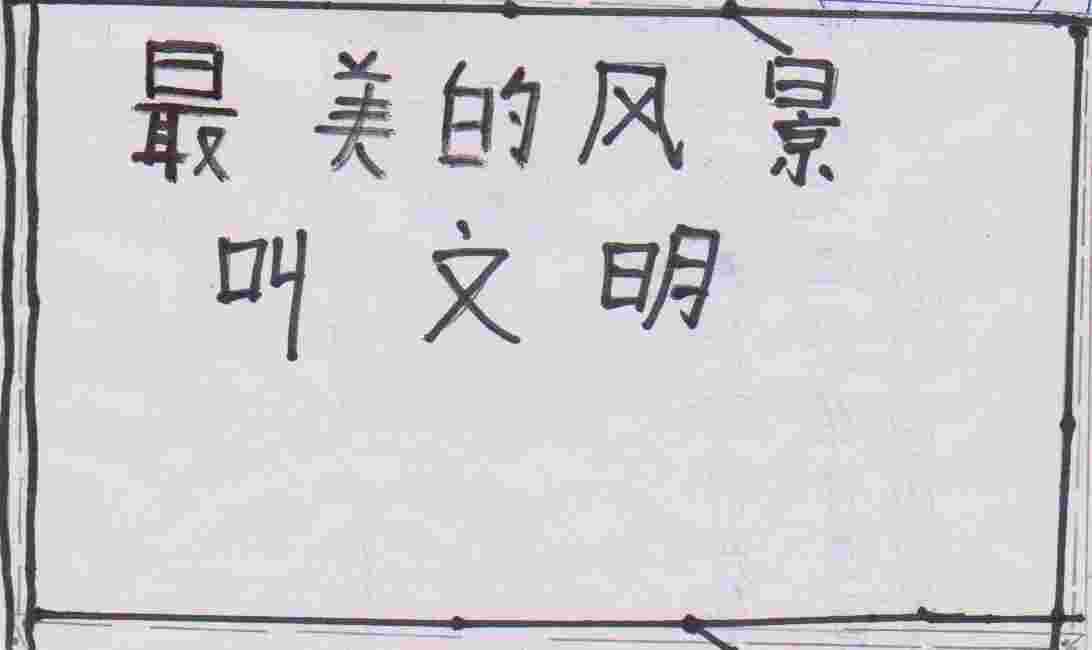 最美的风景
叫文明